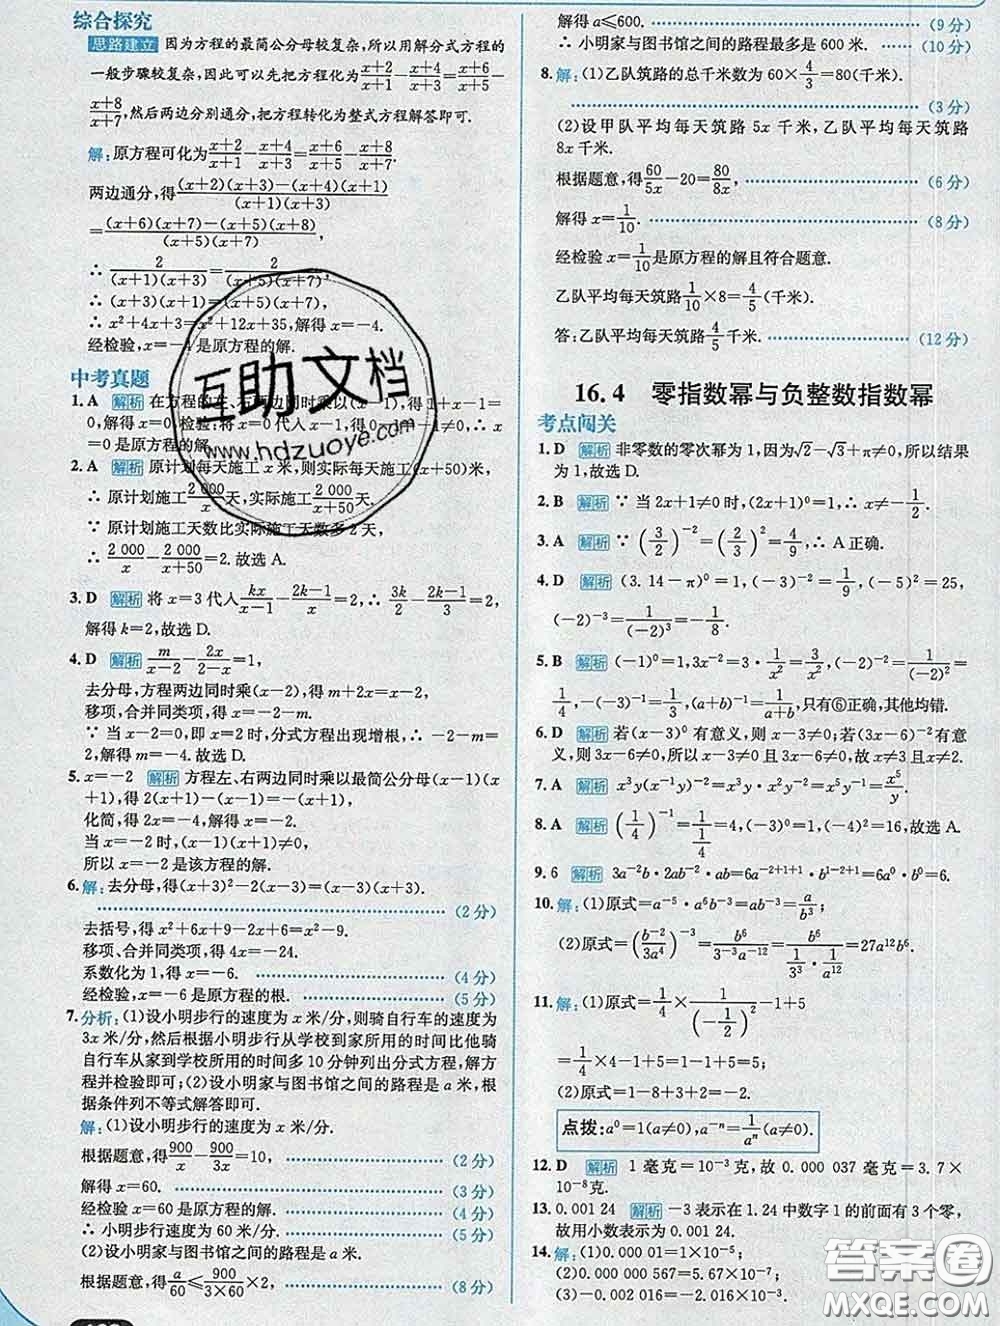 综合探究
思路建立 因为方程的最简公分母较复杂,所以用解分式方程的
一般步骤较复杂,因此可以先把方程化为(x+2)/(x+1)-(x+4)/(x+3)=(x+6)/(x+5)-
(x+8)/(x+7),然后两边分别通分,把方程转化为整式方程解答即可.
解:原方程可化为(x+2)/(x+1)-(x+4)/(x+3)=(x+6)/(x+5)-(x+8)/(x+7).
两边通分,得((x+2)(x+3)-(x+4)(x+1))/((x+1)(x+3))
=((x+6)(x+7)-(x+5)(x+8))/((x+5)(x+7)),
∴ 2/((x+1)(x+3))=2/((x+5)(x+7)),
∴ (x+1)(x+3)=(x+5)(x+7),
∴ x²+4x+3=x²+12x+35,解得 x=-4.
经检验,x=-4是原方程的解.
中考真题
1. A 解析 在方程的左、右两边同时乘以(x-1),得1+x-1=
0,解得 x=0.检验:将 x=0 代入 x-1,得0-1≠0,所以 x=
0是原方程的解.
2. A 解析 原计划每天施工 x 米,则实际每天施工(x+50)米,
∴ 原计划施工2 000/x天,实际施工2 000/(x+50)天.
∵ 原计划施工天数比实际施工天数多2天,
∴ 2 000/x-2 000/(x+50)=2. 故选 A.
3. D 解析 将 x=3 代入kx/(x-1)-(2k-1)/x=2,∴ 3k/2-(2k-1)/3=2,
解得 k=2,故选 D.
4. D 解析 m/(x-2)-2x/(2-x)=1,
去分母,方程两边同时乘(x-2),得 m+2x=x-2.
移项,合并同类项,得 x=-2-m.
∵ 当 x-2=0,即 x=2 时,分式方程出现增根,∴ -2-m=
2,解得 m=-4.故选 D.
5. x=-2 解析 方程左、右两边同时乘以最简公分母(x-1)(x
+1),得 2(x-1)-(x+1)=-(x+1).
化简,得 2x=-4,解得 x=-2.
当 x=-2 时,(x-1)(x+1)≠0,
所以 x=-2 是该方程的解.
6. 解:去分母,得(x+3)²-2(x-3)=(x-3)(x+3).
(2 分)
去括号,得 x²+6x+9-2x+6=x²-9.
移项、合并同类项,得 4x=-24.
系数化为 1,得 x=-6. (4 分)
经检验,x=-6 是原方程的根. (5 分)
7. 分析:(1)设小明步行的速度为 x 米/分,则骑自行车的速度为
3x 米/分,然后根据小明步行从学校到家所用的时间比他骑
自行车从家到学校所用的时间多 10 分钟列出分式方程,解方
程并检验即可;(2)设小明家与图书馆之间的路程是 a 米,根
据条件列不等式解答即可.
解:(1)设小明步行的速度为 x 米/分.
根据题意,得900/x-900/3x=10, (2 分)
解得 x=60. (3 分)
经检验 x=60 是原方程的解. (4 分)
∴ 小明步行速度为 60 米/分. (5 分)
(2)设小明家与图书馆之间的路程为 a 米.
根据题意,得a/60≤900/(3×60)×2, (8 分)
解得 a≤600. (9 分)
∴ 小明家与图书馆之间的路程最多是 600 米. (10 分)
8. 解:(1)乙队筑路的总千米数为 60×4/3=80(千米).
(3 分)
(2)设甲队平均每天筑路 5x 千米,乙队平均每天筑路
8x千米.
根据题意,得60/5x-20=80/8x, (6 分)
解得 x=1/10. (8 分)
经检验 x=1/10是原方程的解且符合题意.
乙队平均每天筑路1/10×8=4/5(千米).
答:乙队平均每天筑路4/5千米. (12 分)
16.4 零指数幂与负整数指数幂
考点闯关
1. D 解析 非零数的零次幂为 1,因为√2-√3+1≠0,所以结果
为 1,故选 D.
2. B 解析 ∵ 当 2x+1≠0 时,(2x+1)⁰=1,∴ x≠-1/2.
3. A 解析 ∵ (3/2)⁻²=(2/3)²=4/9,∴ A正确.
4. D 解析 (3.14-π)⁰=1,(-3)⁻²=1/9,(-5)²=25,
(-2)⁻³=1/(-2)³=-1/8.
5. B 解析 (-1)⁰=1,3x⁻²=3·1/x²=3/x²,(-2)⁻²=1/(-2)²=
1/4,-(-1)⁻³=1,(a+b)⁻¹=1/(a+b),只有⑥正确,其他均错.
6. D 解析 若(x-3)⁰ 有意义,则 x-3≠0;若(3x-6)⁻² 有意
义,则 3x-6≠0,所以 x-3≠0 且 3x-6≠0,故 x≠3 且 x≠2.
7. A 解析 x³y(x⁻¹y)⁻²=x³y·x²y⁻²=x⁵y⁻¹=x⁵/y.
8. A 解析 (1/4)⁻¹=1/(1/4)=4,(-1)²=1,(-4)²=16,故选 A.
9. 6 解析 3a⁻²b·2ab⁻²·ab=6a⁻²⁺¹⁺¹·b¹⁻²⁺¹=6a⁰·b⁰=6.
10. 解:(1)原式=a⁻⁵·a⁶b⁻³=ab⁻³=a/b³;
(2)原式=(b⁻²/3a⁴)⁻³=b⁶/(3⁻³a⁻¹²)=b⁶/(1/3³·1/a¹²)=27a¹²b⁶.
11. 解:(1)原式=1/4×1/(-1/2)²-1+5
=1/4×4-1+5=1-1+5=5;
(2)原式=1-8+3+2=-2.
点拨:a⁰=1(a≠0),a⁻ⁿ=1/aⁿ(a≠0).
12. D 解析 1 毫克=10⁻³克,故 0.000 037 毫克=3.7×
10⁻⁸克.
13. 0.001 24 解析 -3 表示在 1.24 中数字 1 的前面有 3 个零,
故用小数表示为 0.001 24.
14. 解:(1)0.000 01=1×10⁻⁵;
(2)0.000 000 567=5.67×10⁻⁷;
(3)-0.002 016=-2.016×10⁻³.
互助文档
www.hdzuoye.com
答案圈
MXQE.COM